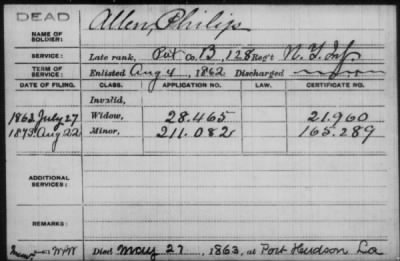 DEAD
NAME OF SOLDIER: Allen, Philip
SERVICE: Late rank, Pvt Co. B, 128 Reg't N.Y. Inf
TERM OF SERVICE: Enlisted Aug 4, 1862 Discharged
DATE OF FILING. CLASS. APPLICATION NO. LAW. CERTIFICATE NO.
Invalid,
1863 July 27 Widow, 28.465 21.960
1873 Aug 22 Minor, 211.082 165.289
ADDITIONAL SERVICES:
REMARKS:
Died May 27, 1863, at Port Hudson La